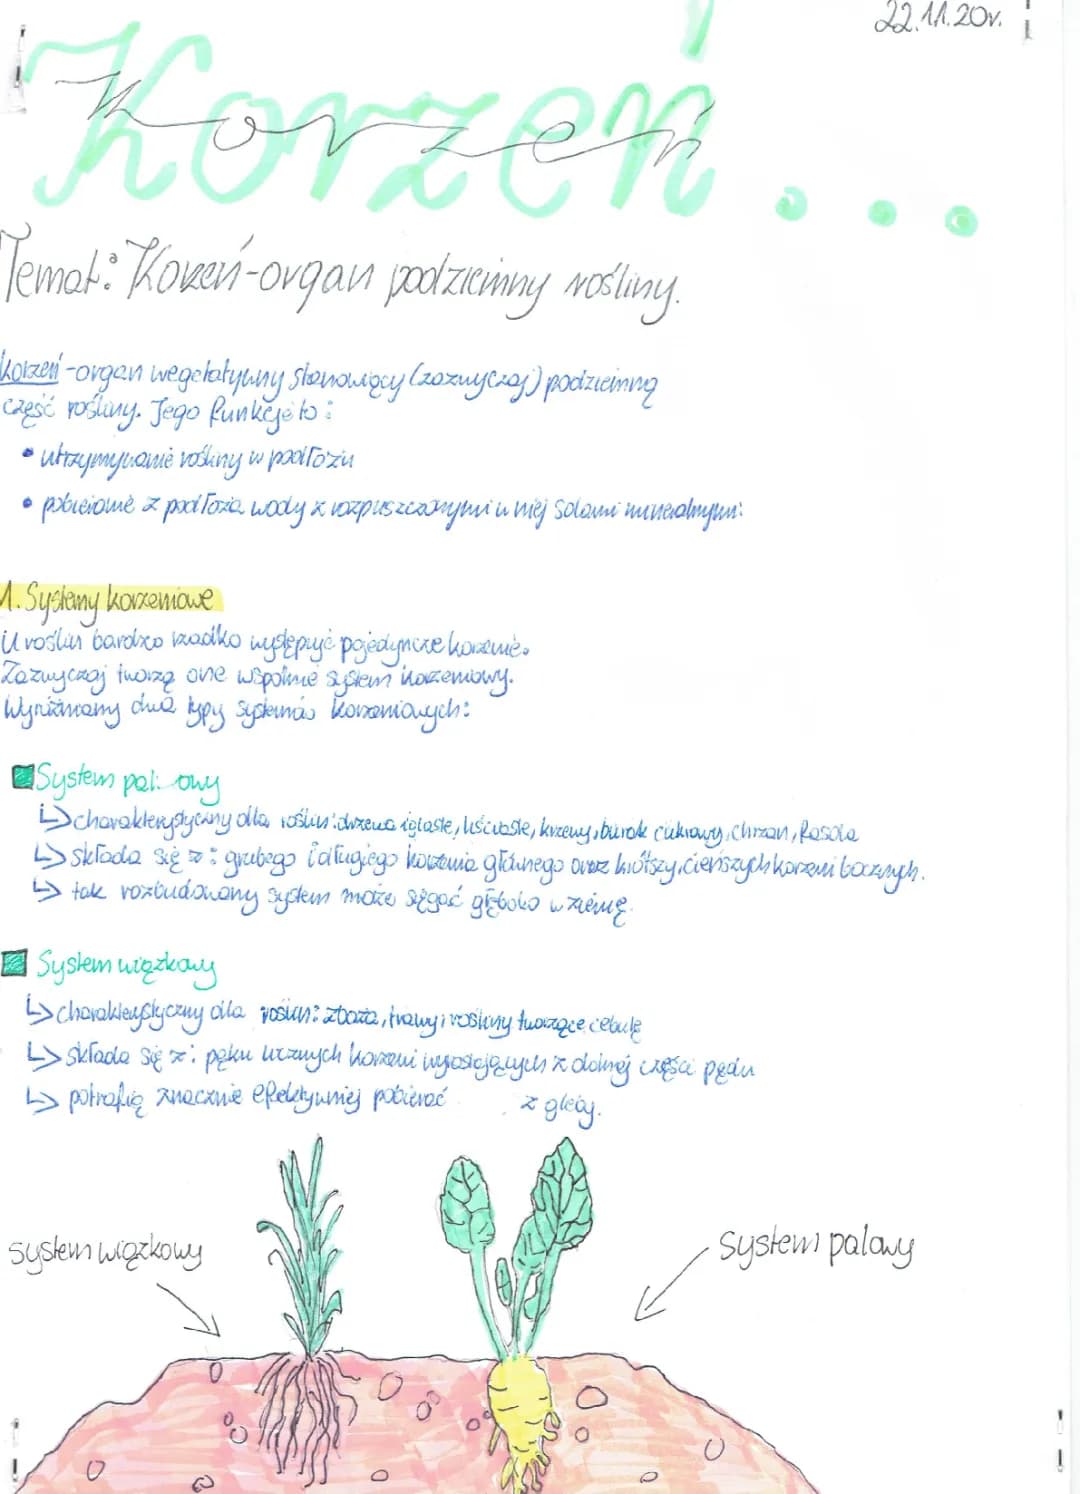 22.11.20r.
Korzeń...
Temat: Korzeń-organ podziemny rośliny.
Korzeń-organ wegetatywny stanowiący (zazwyczaj) podziemną
część rośliny. Jego funkcje to:
• utrzymywanie rośliny w podłożu
• pobieranie z podłoża wody z rozpuszczonymi w niej solami mineralnymi.
1. Systemy korzeniowe
U roślin bardzo rzadko występuje pojedyncze korzenie.
Zazwyczaj tworzą one wspólnie system korzeniowy.
Wyróżniamy dwa typy systemów korzeniowych:
System palowy
↳ charakterystyczny dla roślin: drzewa iglaste, liściaste, krzewy, burak cukrowy, chrzan, fasola
↳ składa się z: grubego i długiego korzenia głównego oraz krótszych, cieńszych korzeni bocznych.
↳ tak rozbudowany system może sięgać głęboko w ziemię.
System wiązkowy
↳ charakterystyczny dla roślin: zboża, trawy, rośliny tworzące cebule
↳ składa się z: pęku licznych korzeni wyrastających z dolnej części pędu
↳ potrafią znacznie efektywniej pobierać z gleby.
system wiązkowy
System palowy